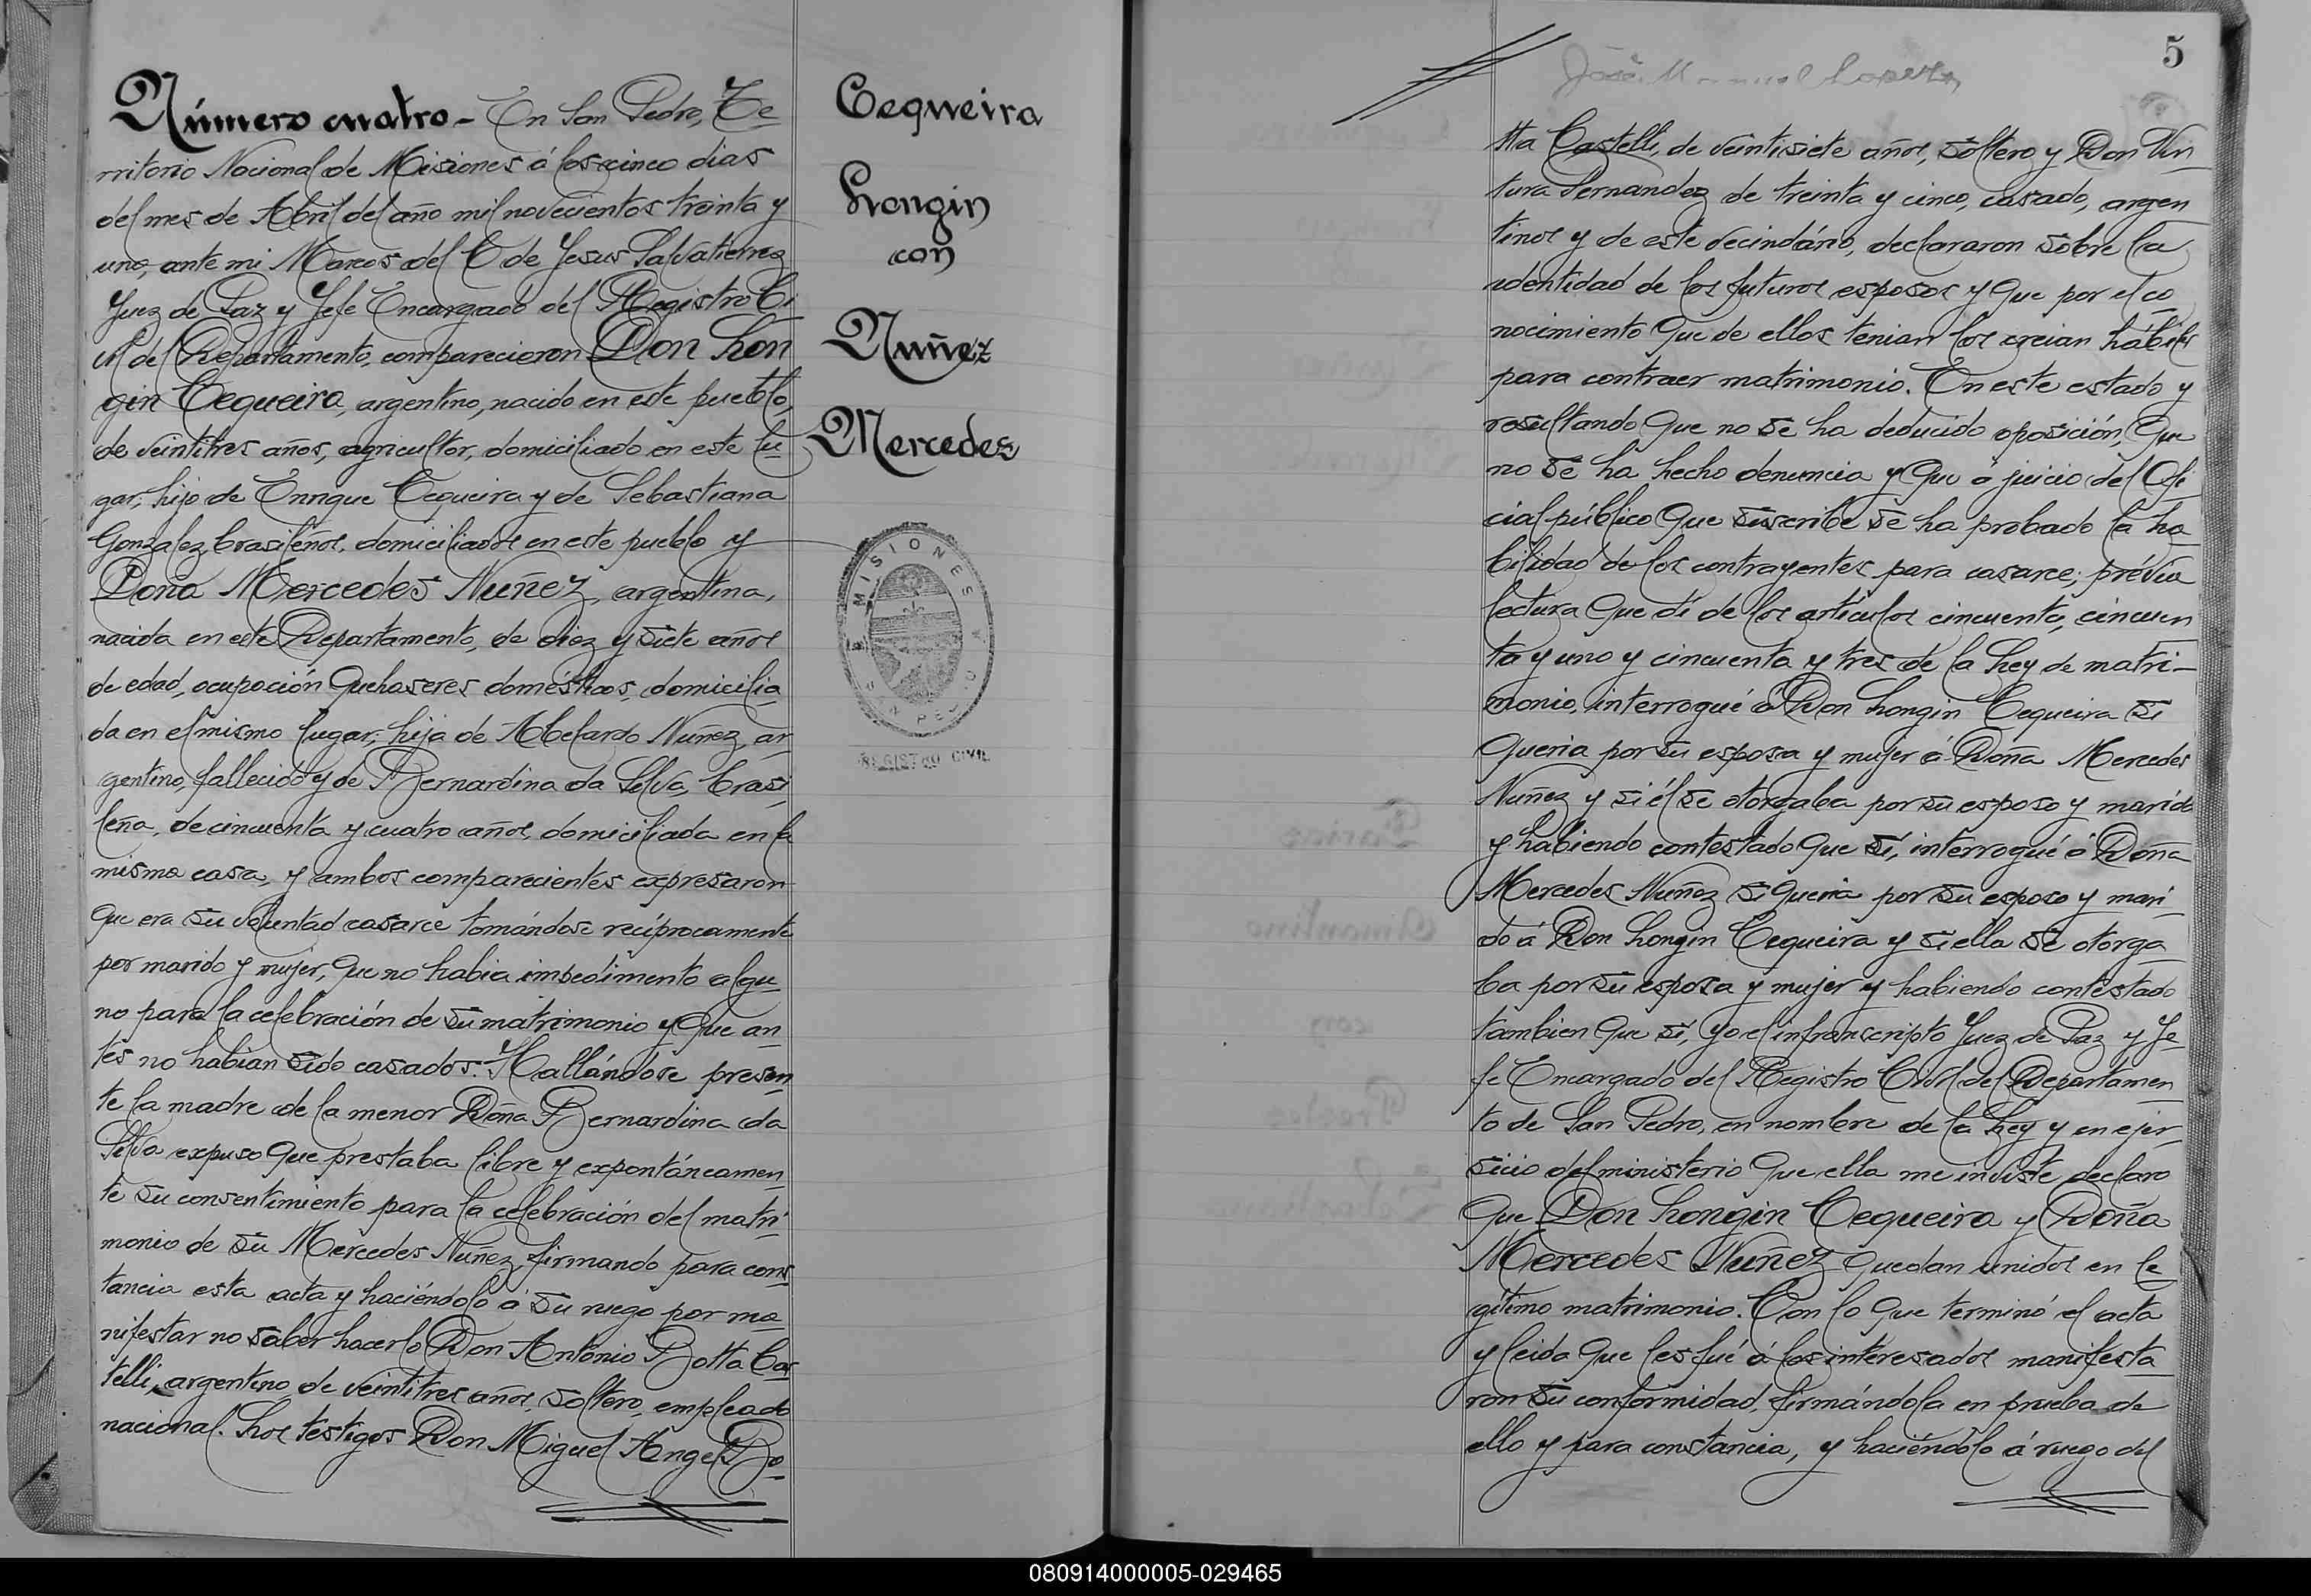 Número cuatro - En San Pedro, Te-
rritorio Nacional de Misiones á los cinco dias
del mes de Abril del año mil novecientos treinta y
uno, ante mi Marcos del C de Jesus Salvatierrez
Juez de Paz y Jefe Encargado del Registro Ci-
vil del Departamento, comparecieron Don Lon
gin Cequeira, argentino, nacido en este pueblo,
de veintitres años, agricultor, domiciliado en este lu-
gar, hijo de Enrique Cequeira y de Sebastiana
Gonzalez, brasileños, domiciliados en este pueblo y
Doña Mercedes Nuñez, argentina,
nacida en este Departamento, de diez y siete años
de edad, ocupación quehaseres domésticos, domicilia
da en el mismo lugar, hija de Abelardo Nuñez, ar-
gentino, fallecido y de Bernardina da Silva, brasi-
leña, de cincuenta y cuatro años, domiciliada en la
misma casa, y ambos comparecientes expresaron
que era su voluntad casarce tomándose recíprocamente
por marido y mujer, que no habia impedimento algu-
no para la celebración de su matrimonio y que an-
tes no habian sido casados. Hallándose presen-
te la madre de la menor Doña Bernardina da
Silva expuso que prestaba libre y expontáneamen-
te su consentimiento para la celebración del matri-
monio de su Mercedes Nuñez, firmando para cons
tancia esta acta y haciéndolo á su ruego por ma-
nifestar no saber hacerlo Don Antonio Botta Cas-
telli, argentino, de veintitres años, soltero, empleado
nacional. Los testigos Don Miguel Angel Bo-
Cequeira
Longin
con
Nuñez
Mercedes
MISIONES
REGISTRO CIVIL
5
José Manuel
tta Castelli, de veintisiete años, soltero y Don Ven-
tura Fernandez de treinta y cinco, casado, argen
tinos y de este vecindário, declararon sobre la
identidad de los futuros esposos y que por el co-
nocimiento que de ellos tenian los creian hábiles
para contraer matrimonio. En este estado y
resultando que no se ha deducido oposición, que
no se ha hecho denuncia y que á juicio del Ofi-
cial público que suscribe se ha probado la ha-
bilidad de los contrayentes para casarce; prévia
lectura que di de los artículos cincuenta, cincuen
ta y uno y cincuenta y tres de la Ley de matri-
monio, interrogué á Don Longin Cequeira si
queria por su esposa y mujer á Doña Mercedes
Nuñez y si él se otorgaba por su esposo y marido
y habiendo contestado que sí, interrogué á Doña
Mercedes Nuñez si queria por su esposo y mari-
do á Don Longin Cequeira y si ella se otorga-
ba por su esposa y mujer y habiendo contestado
tambien que sí, yo el infranscripto Juez de Paz y Je-
fe Encargado del Registro Civil del Departamen
to de San Pedro, en nombre de la Ley y en ejer-
sicio del ministerio que ella me inviste declaro
que Don Longin Cequeira y Doña
Mercedes Nuñez quedan unidos en le-
gítimo matrimonio. Con lo que terminó el acta
y leida que les fué á los interesados manifesta-
ron su conformidad, firmándola en prueba de
ello y para constancia, y haciéndolo á ruego del
080914000005-029465